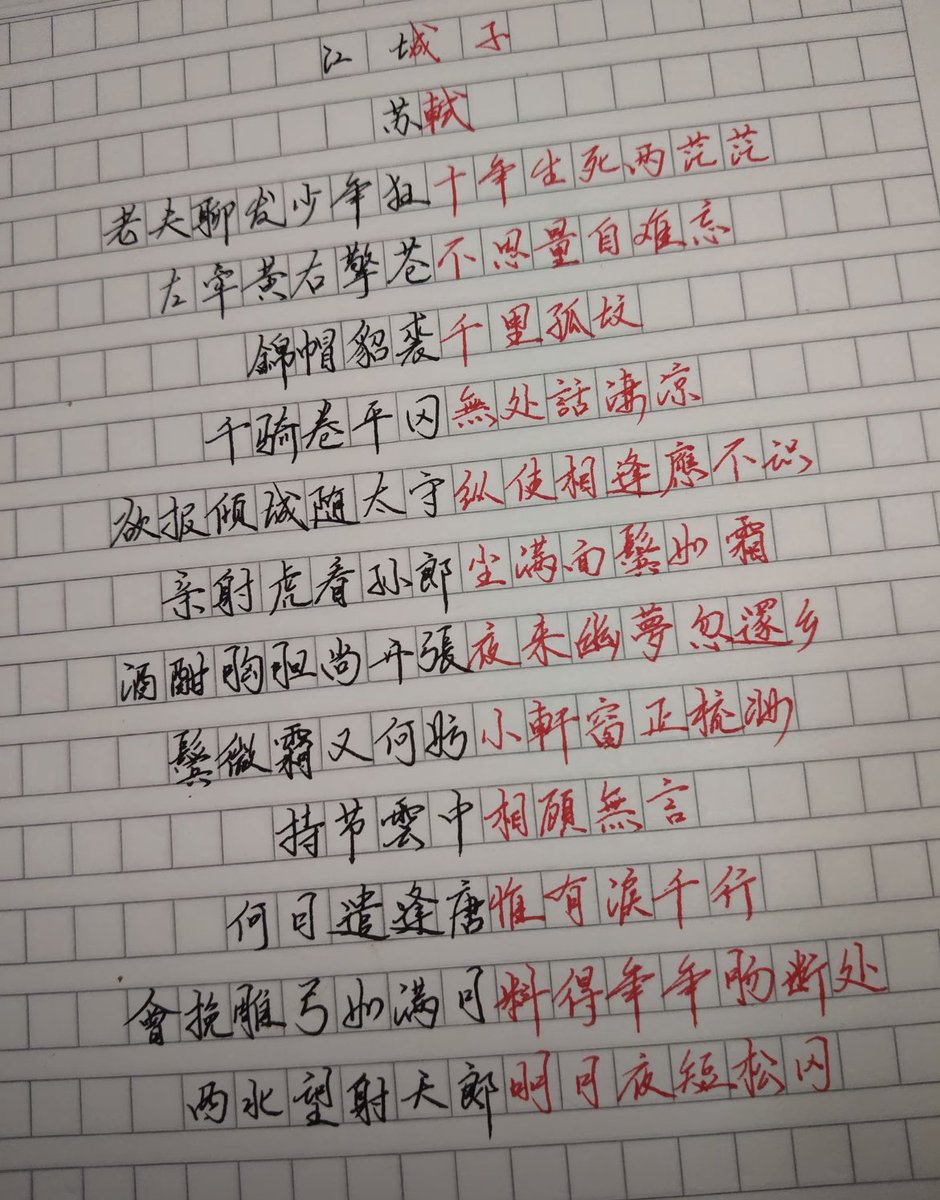 江城子
苏軾
老夫聊发少年狂十年生死两茫茫
左牵黄右擎苍不思量自难忘
錦帽貂裘千里孤坟
千骑卷平冈無处話淒凉
欲报倾城随太守纵使相逢應不识
亲射虎看孙郎尘满面鬓如霜
酒酣胸胆尚开張夜来幽夢忽還乡
鬓微霜又何妨小軒窗正梳妝
持节雲中相顾無言
何日遣逢唐惟有淚千行
會挽雕弓如满月料得年年肠断处
西北望射天郎明月夜短松冈